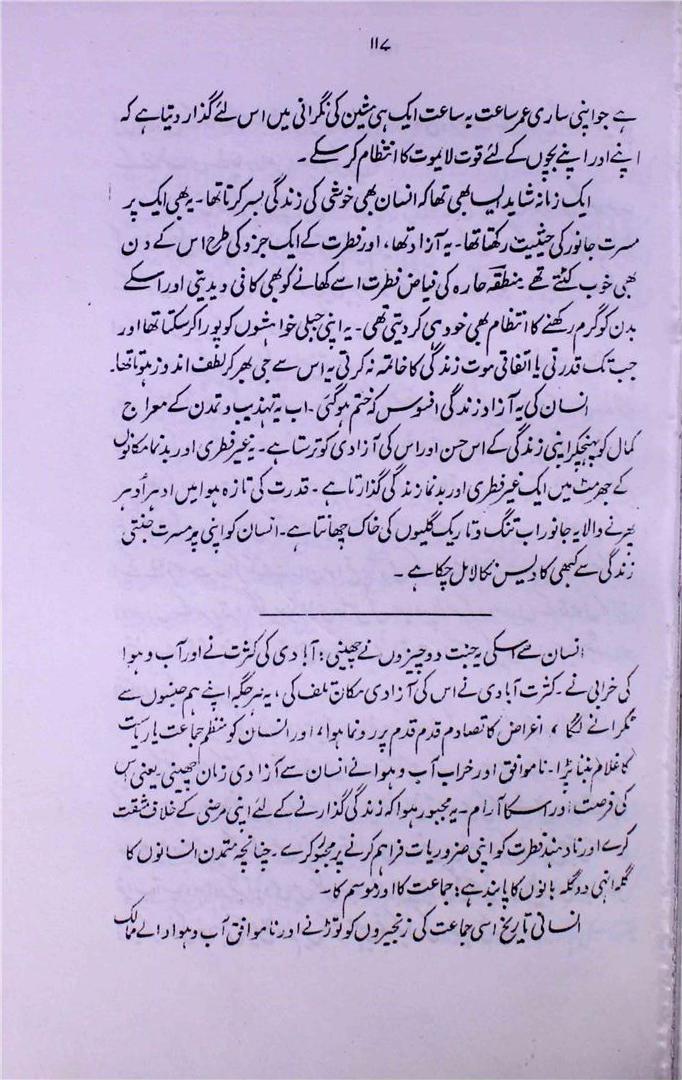 ۱۱۷
ہے جو اپنی ساری عمر ساعت بہ ساعت ایک ہی مشین کی نگرانی میں اس لئے گذار دیتا ہے کہ
اپنے اور اپنے بچوں کے لئے قوت لا یموت کا انتظام کر سکے۔
ایک زمانہ شاید ایسا بھی تھا کہ انسان بھی خوشی کی زندگی بسر کرتا تھا۔ یہ بھی ایک پر
مسرت جانور کی حیثیت رکھتا تھا۔ یہ آزاد تھا، اور فطرت کے ایک جزو کی طرح اس کے دن
بھی خوب کٹتے تھے منطقہ حارہ کی فیاض فطرت اسے کھانے کو بھی کافی دیدیتی اور اسکے
بدن کو گرم رکھنے کا انتظام بھی خود ہی کر دیتی تھی۔ یہ اپنی جبلی خواہشوں کو پورا کر سکتا تھا اور
جب تک قدرتی یا اتفاقی موت زندگی کا خاتمہ نہ کرتی یہ اس سے جی بھر کر لطف اندوز ہوتا تھا۔
انسان کی یہ آزاد زندگی افسوس کہ ختم ہو گئی۔ اب یہ تہذیب و تمدن کے معراج
کمال کو پہنچکر اپنی زندگی کے اس حسن اور اس کی آزادی کو ترستا ہے۔ یہ غیر فطری اور بدنما مکانوں
کے جھرمٹ میں ایک غیر فطری اور بدنما زندگی گذارتا ہے۔ قدرت کی تازہ ہوا میں ادہر اُدہر
پھرنے والا یہ جانور اب تنگ و تاریک گلیوں کی خاک چھانتا ہے۔ انسان کو اپنی پر مسرت جنتی
زندگی سے کبھی کا دیس نکالا مل چکا ہے۔
انسان سے اسکی یہ جنت دو چیزوں نے چھینی؛ آبادی کی کثرت نے اور آب و ہوا
کی خرابی نے۔ کثرت آبادی نے اس کی آزادی مکان تلف کی، یہ ہر جگہ اپنے ہم جنسوں سے
ٹکرانے لگا، اغراض کا تصادم قدم قدم پر رونما ہوا، اور انسان کو منظم جماعت یا ریاست
کا غلام بننا پڑا۔ ناموافق اور خراب آب و ہوا نے انسان سے آزادی زمان چھینی یعنی اس
کی فرصت اور اسکا آرام۔ یہ مجبور ہوا کہ زندگی گذارنے کے لئے اپنی مرضی کے خلاف مشقت
کرے اور نادہند فطرت کو اپنی ضروریات فراہم کرنے پر مجبور کرے۔ چنانچہ متمدن انسانوں کا
گلہ انہی دو گلہ بانوں کا پابند ہے؛ جماعت کا اور موسم کا۔
انسانی تاریخ اسی جماعت کی زنجیروں کو توڑنے اور ناموافق آب و ہوا والے ممالک